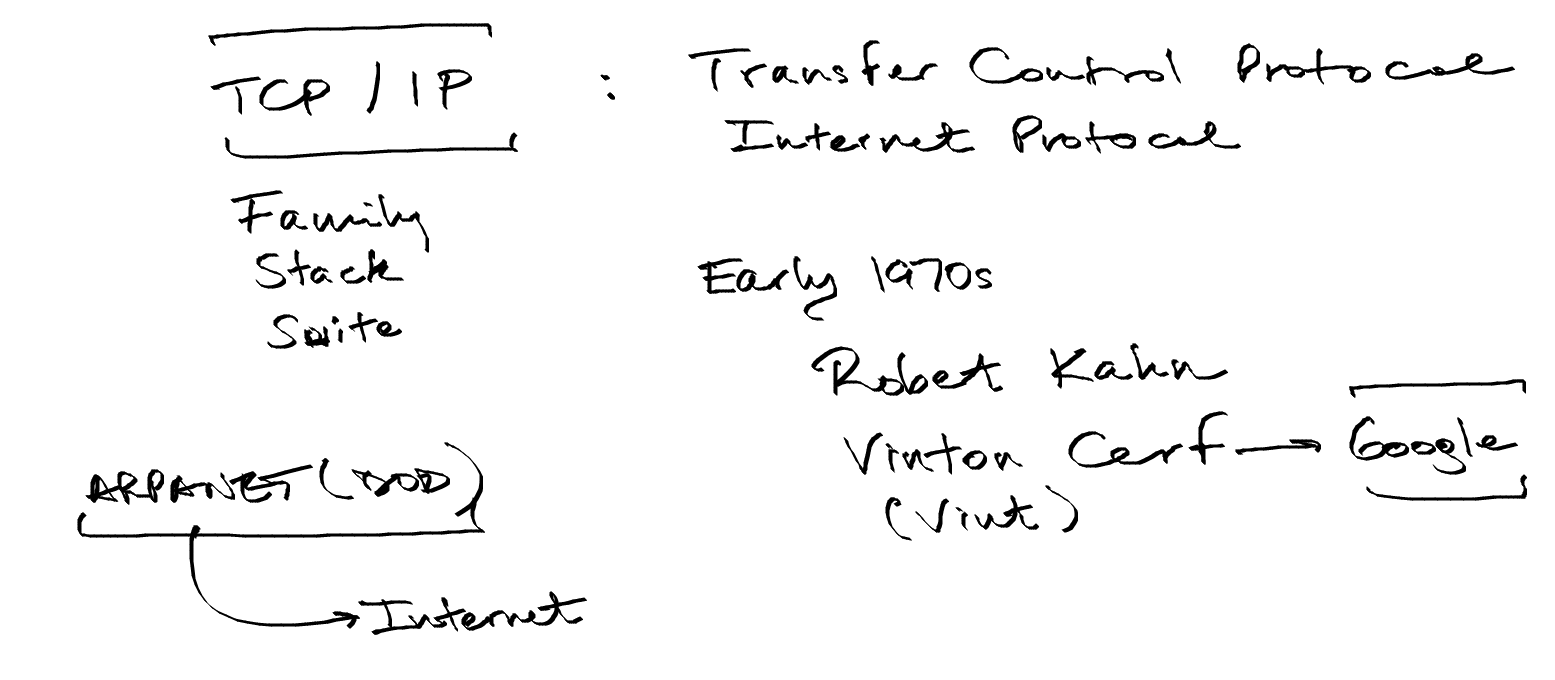 TCP / IP : Transfer Control Protocol
Internet Protocol
Family
Stack
Suite
Early 1970s
Robert Kahn
Vinton Cerf → Google
(Vint)
ARPANET (DOD)
→ Internet